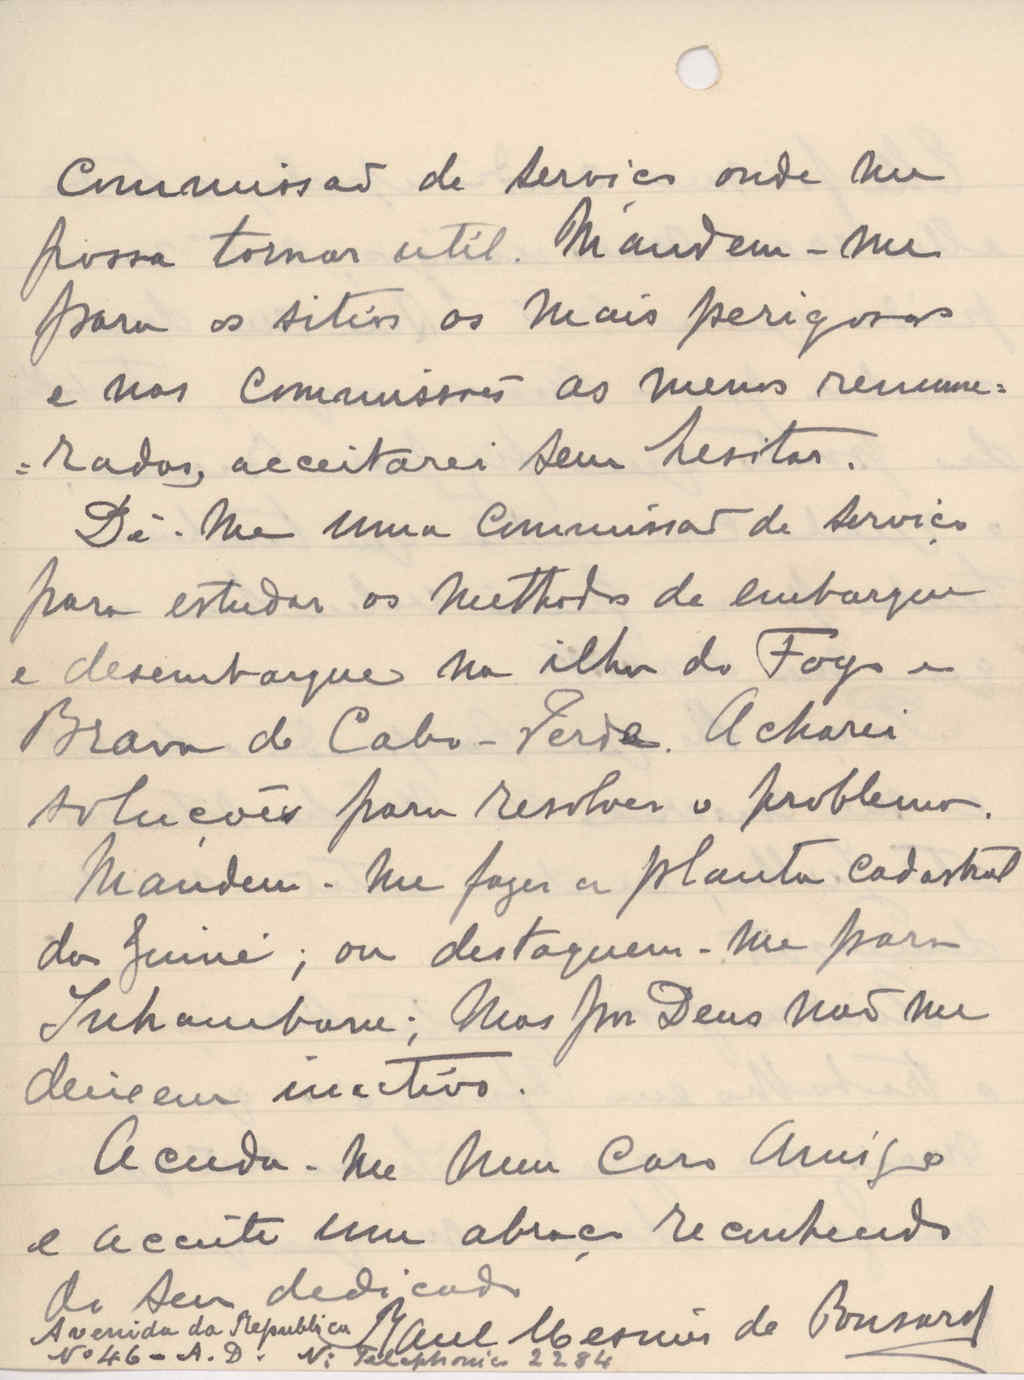 Commissaõ de serviço onde me
possa tornar util. Mandem-me
para os sitios os mais perigosos
e nas commissoẽs as menos remune=
=radas, acceitarei sem hesitar.
Dê-me uma commissaõ de serviço
para estudar os methodos de embarque
e desembarque na ilha do Fogo e
Brava de Cabo-Verde. Acharei
soluçoẽs para resolver o problema.
Mandem-me fazer a planta cadastral
da Guiné; ou destaquem-me para
Inhambane; mas por Deus naõ me
deixem inactivo.
Acuda-me meu caro Amigo
e acceite um abraço reconhecido
do seu dedicado
Raul Mesnier de Ponsard
Avenida da Republica
Nº 46-A.D. Nº Telephonico 2284